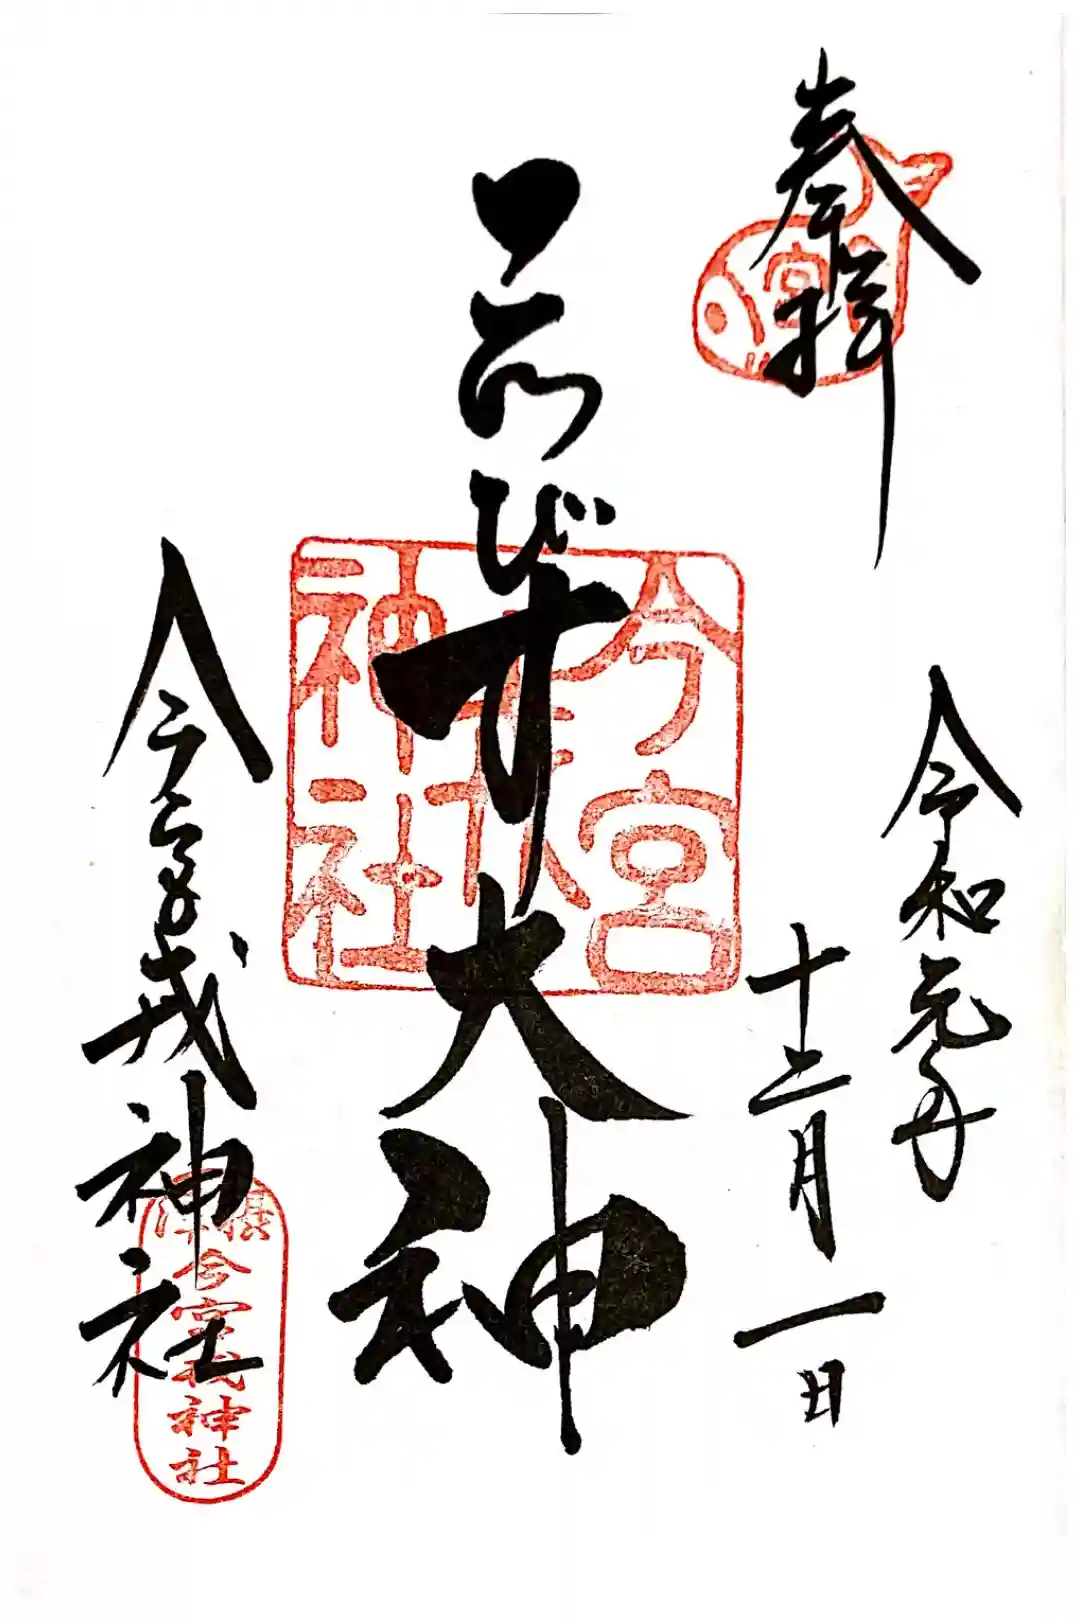 奉拝
令和元年
十二月一日
ゑびす大神
今宮戎神社
今宮
戎
神社
攝津
今宮戎神社
宮